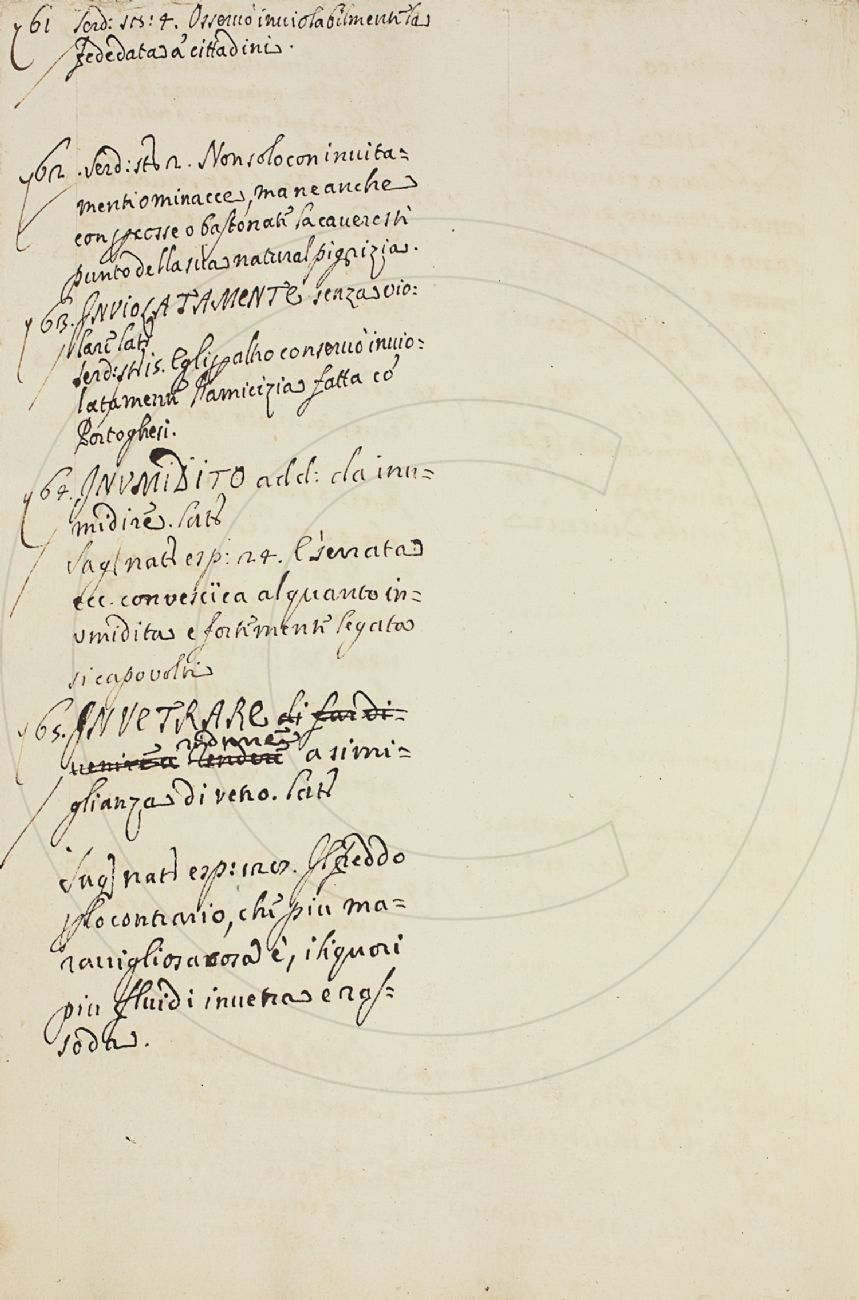 61 Serd: sto: 4. Osservò inviolabilmente la
fede data a' cittadini.
62. Serd: sto 2. Non solo con invita=
menti o minacce, ma neanche
con percosse o bastonate la caveresti
punto della sua natural pigrizia.
63. INVIOLATAMENTE senza vio:
lare lat:
Serd: sto 15. Egli peraltro conservò invio:
latamente l'amicizia fatta co'
Portoghesi.
64. INUMIDITO add: da inu=
midire. Lat:
Sag: nat: esp: 24. E serrata
ecc. con vescica alquanto in=
umidita e fortemente legata
si capovolti
65. INVETRARE di far di=
venire a rendere ridurre a simi=
glianza di vetro. Lat:
Sag: nat: esp: 128. Il freddo
per lo contrario, che più ma=
ravigliosa cosa è, i liquori
più fluidi invetra e ras=
soda.